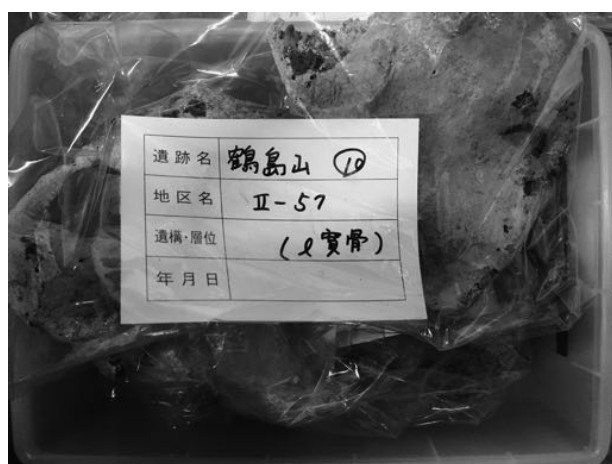 遺跡名 鶴島山 ⑩
地区名 Ⅱ-57
遺構・層位 (ℓ寛骨)
年月日